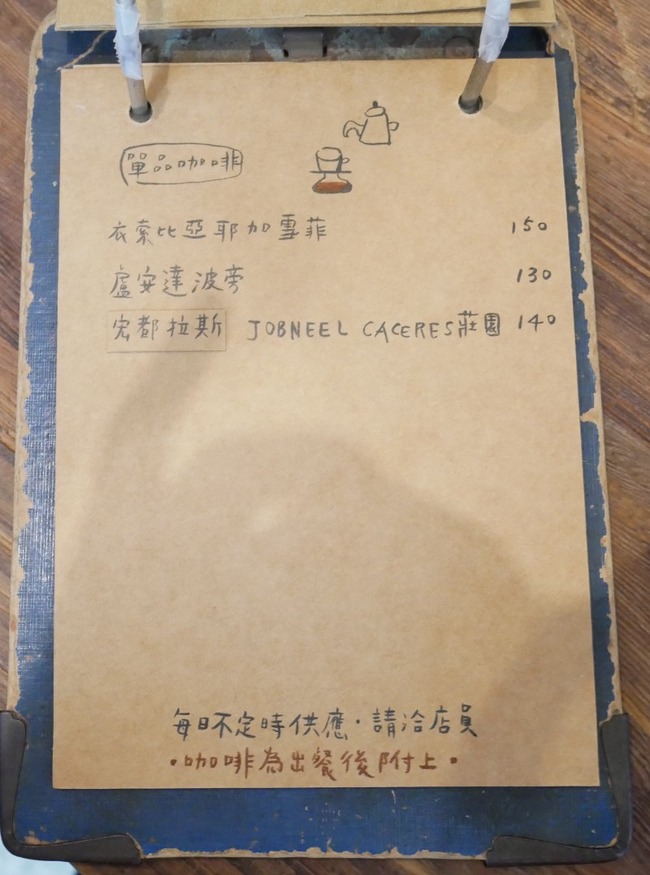 單品咖啡
衣索比亞耶加雪菲 150
盧安達波旁 130
宏都拉斯 JOBNEEL CACERES莊園 140
每日不定時供應·請洽店員
·咖啡為出餐後附上·